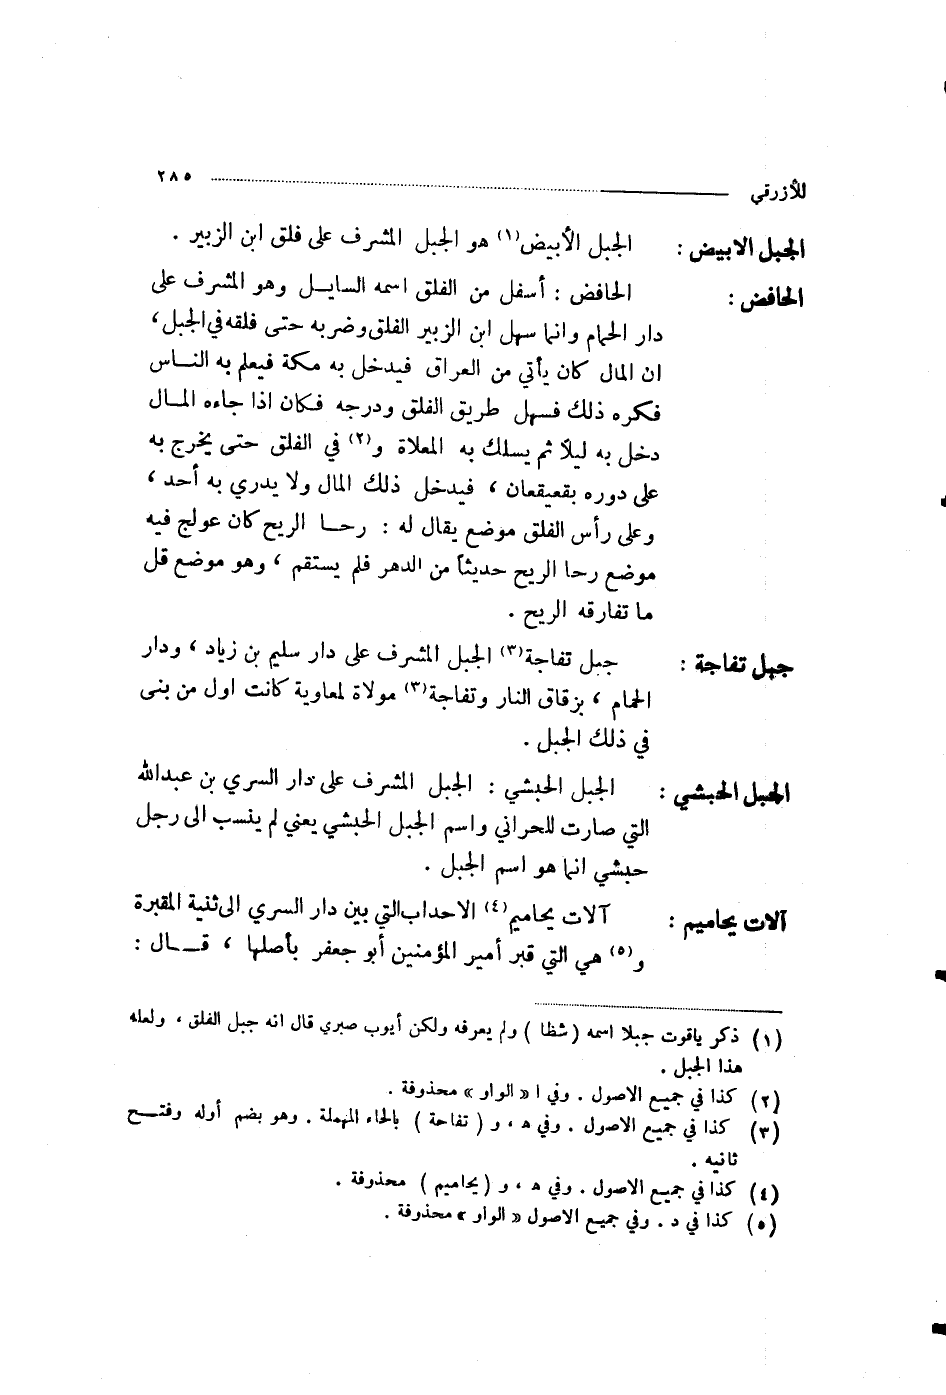 للأزرقي ٢٨٥
الجبل الابيض : الجبل الأبيض(١) هو الجبل المشرف على فلق ابن الزبير .
الحافض : الحافض : أسفل من الفلق اسمه السايـل وهو المشرف على
دار الحمام وانما سهل ابن الزبير الفلق وضربه حتى فلقه في الجبل ،
ان المال كان يأتي من العراق فيدخل به مكة فيعلم به النـاس
فكره ذلك فسهل طريق الفلق ودرجه فكان اذا جاءه المـال
دخل به ليلاً ثم يسلك به المعلاة و(٢) في الفلق حتى يخرج به
على دوره بقعيقعان ، فيدخل ذلك المال ولا يدري به أحد ،
وعلى رأس الفلق موضع يقال له : رحـا الريح كان عولج فيه
موضع رحا الريح حديثاً من الدهر فلم يستقم ، وهو موضع قل
ما تفارقه الريح .
جبل تفاجة : جبل تفاجة(٣) الجبل المشرف على دار سليم بن زياد ، ودار
الحمام ، بزقاق النار وتفاجة(٣) مولاة لمعاوية كانت اول من بنى
في ذلك الجبل .
الجبل الحبشي : الجبل الحبشي : الجبل المشرف على دار السري بن عبدالله
التي صارت للحراني واسم الجبل الحبشي يعني لم ينسب الى رجل
حبشي انما هو اسم الجبل .
آلات يحاميم : آلات يحاميم(٤) الاحداب التي بين دار السري الى ثنية المقبرة
و(٥) هي التي قبر أمير المؤمنين أبو جعفر بأصلها ، قــال :
(١) ذكر ياقوت جبلا اسمه ( شظا ) ولم يعرفه ولكن أيوب صبري قال انه جبل الفلق ، ولعله
هذا الجبل .
(٢) كذا في جميع الاصول . وفي ا « الوار » محذوفة .
(٣) كذا في جميع الاصول . وفي ه ، و ( تفاحة ) بالحاء المهملة . وهو بضم أوله وفتـح
ثانيه .
(٤) كذا في جميع الاصول . وفي ه ، و ( يحاميم ) محذوفة .
(٥) كذا في د . وفي جميع الاصول « الوار » محذوفة .